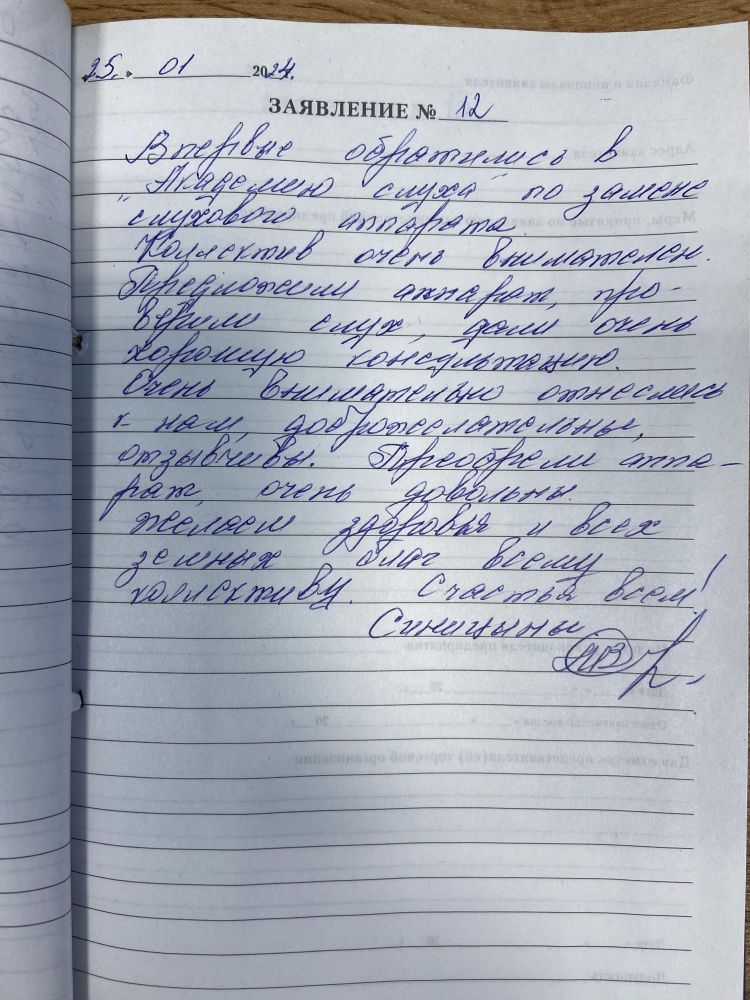 25. » 01 2024.
ЗАЯВЛЕНИЕ № 12
Впервые обратились в
"Академию слуха" по замене
слухового аппарата.
Коллектив очень внимателен.
Предложили аппарат, про-
верили слух, дали очень
хорошую консультацию.
Очень внимательно отнеслись
к нам, доброжелательные,
отзывчивы. Приобрели аппа-
рат, очень довольны.
Желаем здоровья и всех
земных благ всему
коллективу. Счастья всем!
Синицыны